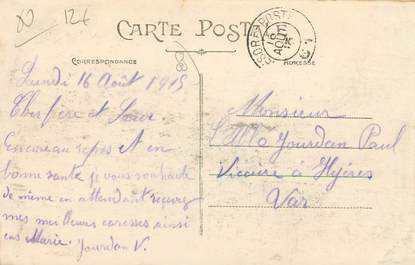 CARTE POSTALE
CORRESPONDANCE
ADRESSE
Lundi 16 Août 1915
Cher frère et Sœur.
Encore au repos et en
bonne santé je vous souhaite
de même en attendant recevez
mes meilleures caresses ainsi
Marie. Jourdan V.
Monsieur
Jourdan Paul
Vicaire à Hyères
Var